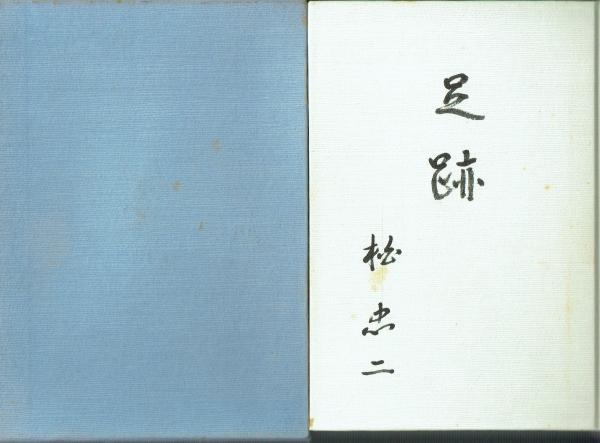 足跡
松忠二